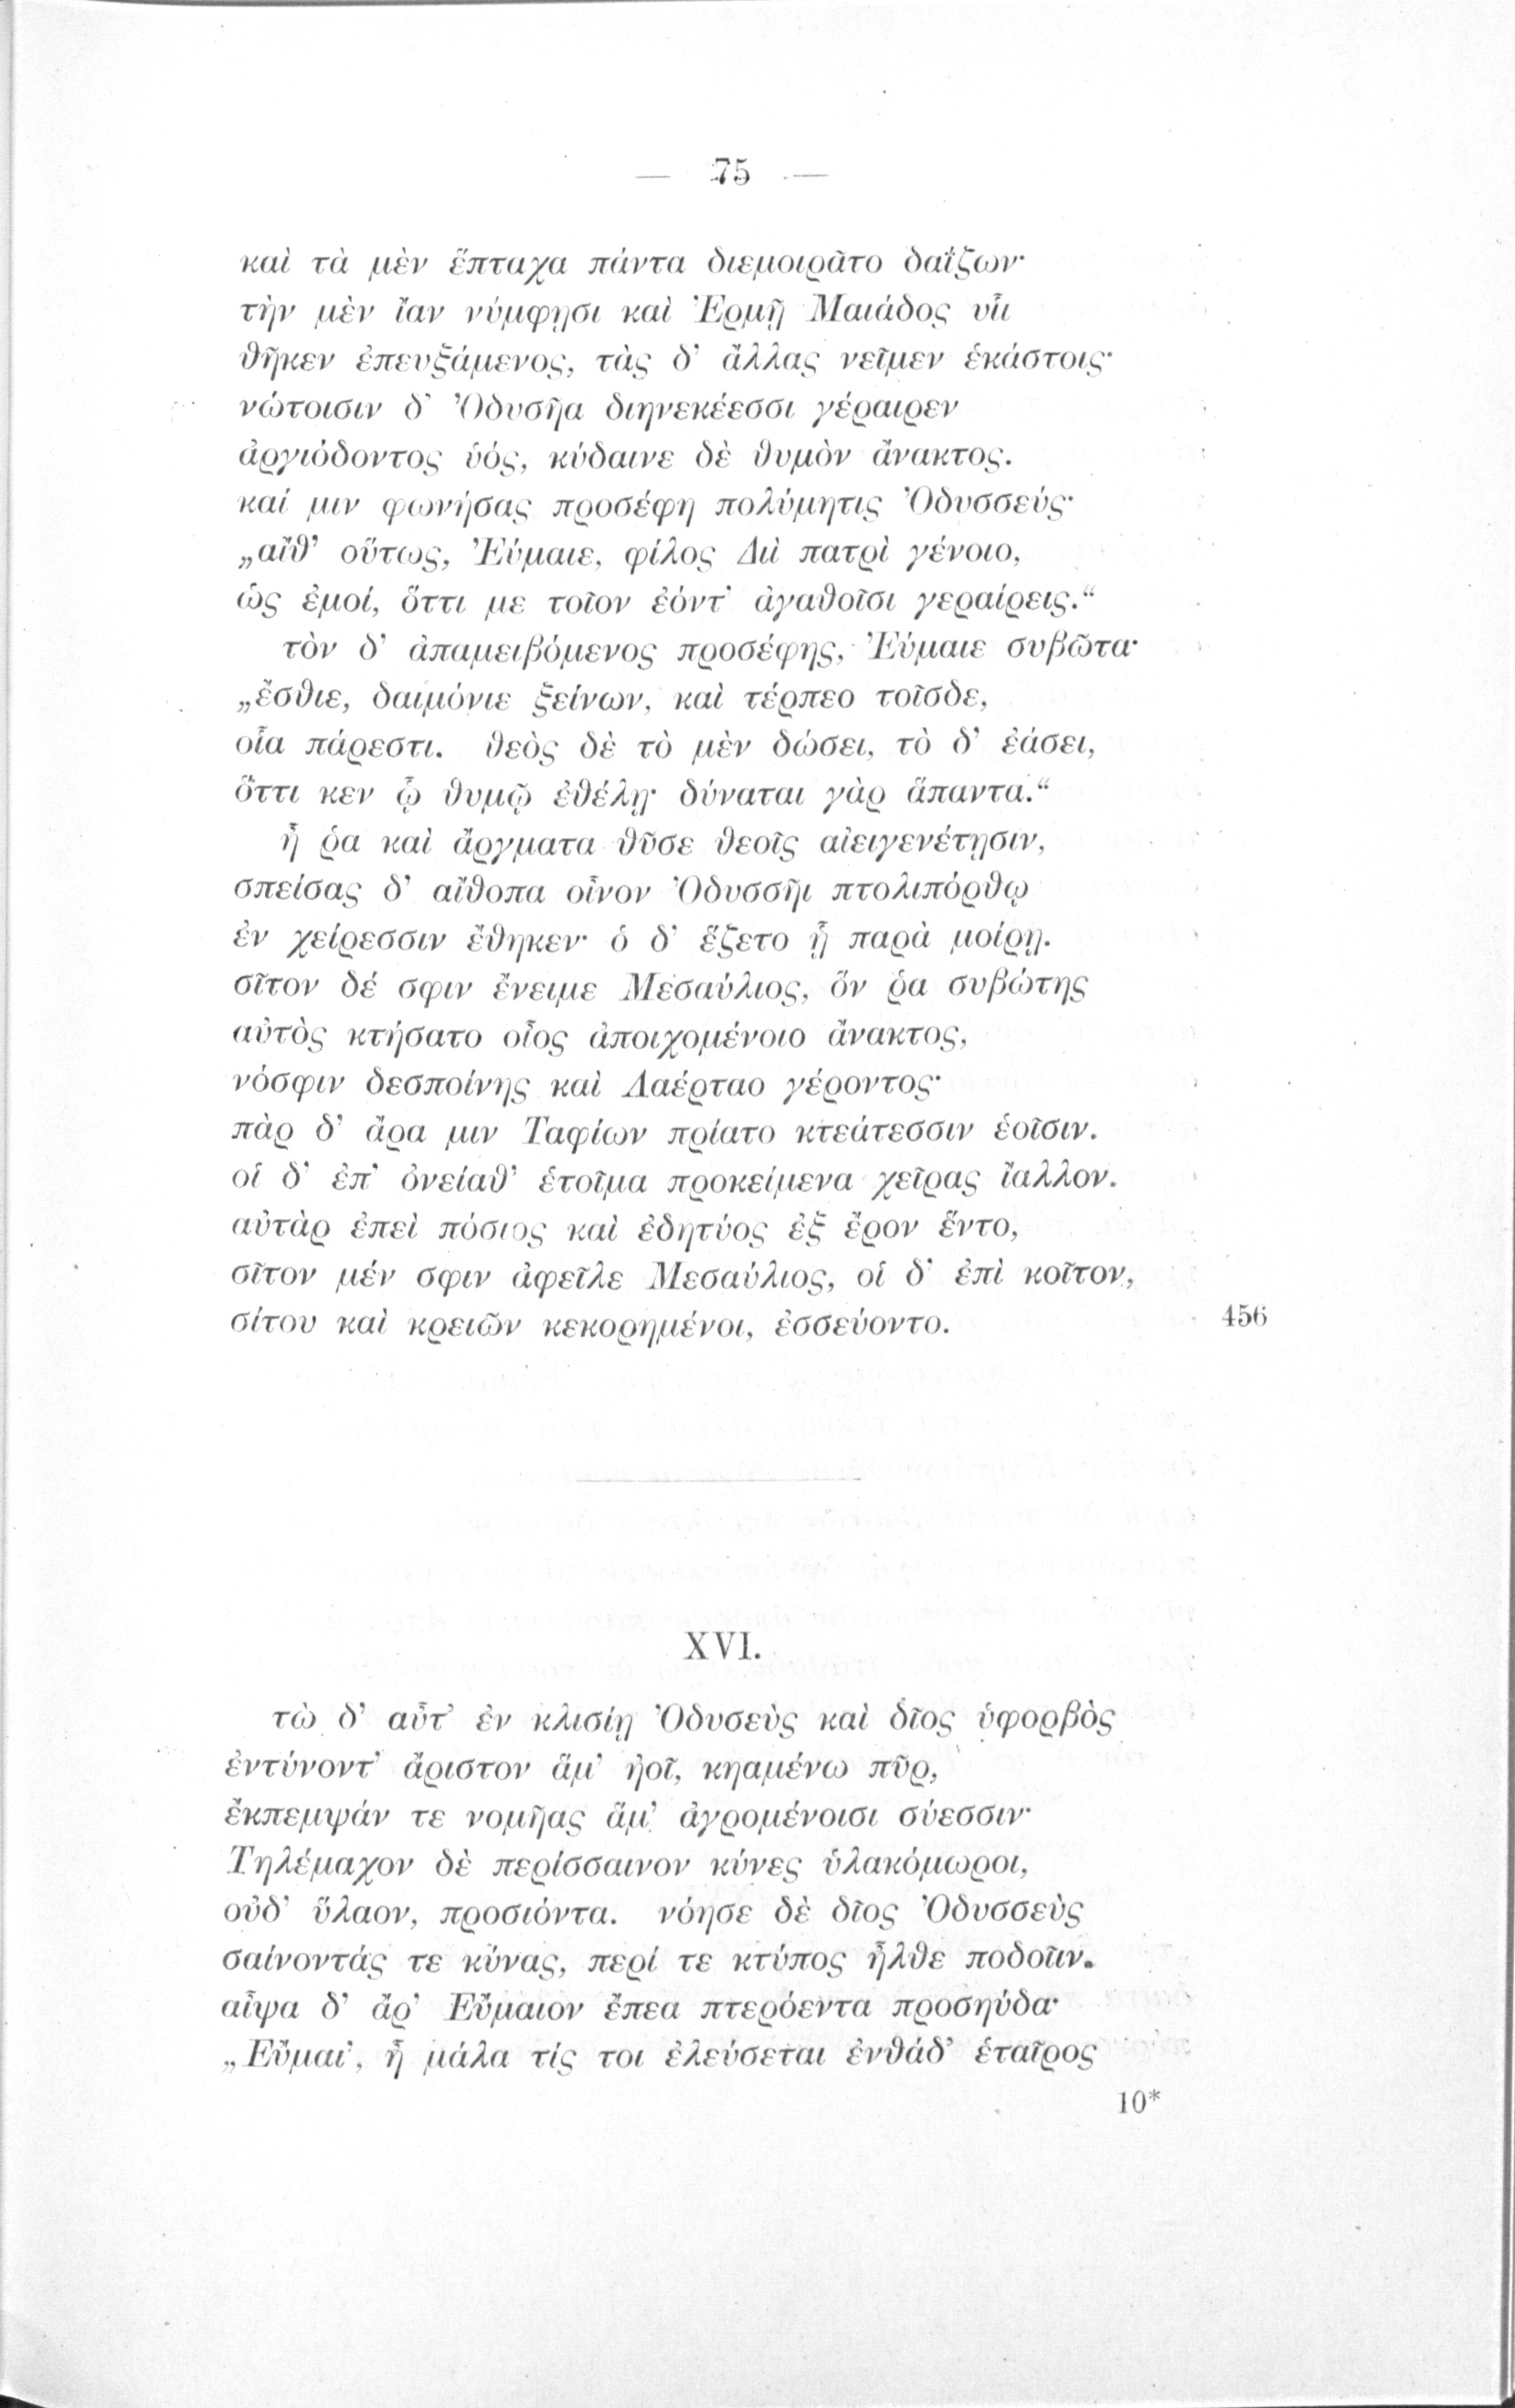 — 75 —
καὶ τὰ μὲν ἕπταχα πάντα διεμοιρᾶτο δαΐζων·
τὴν μὲν ἴαν νύμφῃσι καὶ Ἑρμῇ Μαιάδος υἷι
θῆκεν ἐπευξάμενος, τὰς δ’ ἄλλας νεῖμεν ἑκάστοις·
νώτοισιν δ’ Ὀδυσῆα διηνεκέεσσι γέραιρεν
ἀργιόδοντος ὑός, κύδαινε δὲ θυμὸν ἄνακτος.
καί μιν φωνήσας προσέφη πολύμητις Ὀδυσσεύς·
„αἴθ’ οὕτως, Ἐύμαιε, φίλος Διὶ πατρὶ γένοιο,
ὡς ἐμοί, ὅττι με τοῖον ἐόντ’ ἀγαθοῖσι γεραίρεις.“
τὸν δ’ ἀπαμειβόμενος προσέφης, Ἐύμαιε συβῶτα·
„ἔσθιε, δαιμόνιε ξείνων, καὶ τέρπεο τοῖσδε,
οἷα πάρεστι. θεὸς δὲ τὸ μὲν δώσει, τὸ δ’ ἐάσει,
ὅττι κεν ᾧ θυμῷ ἐθέλῃ· δύναται γὰρ ἅπαντα.“
ἦ ῥα καὶ ἄργματα θῦσε θεοῖς αἰειγενέτῃσιν,
σπείσας δ’ αἴθοπα οἶνον Ὀδυσσῆι πτολιπόρθῳ
ἐν χείρεσσιν ἔθηκεν· ὁ δ’ ἕζετο ᾗ παρὰ μοίρῃ.
σῖτον δέ σφιν ἔνειμε Μεσαύλιος, ὅν ῥα συβώτης
αὐτὸς κτήσατο οἶος ἀποιχομένοιο ἄνακτος,
νόσφιν δεσποίνης καὶ Λαέρταο γέροντος·
πὰρ δ’ ἄρα μιν Ταφίων πρίατο κτεάτεσσιν ἑοῖσιν.
οἱ δ’ ἐπ’ ὀνείαθ’ ἑτοῖμα προκείμενα χεῖρας ἴαλλον.
αὐτὰρ ἐπεὶ πόσιος καὶ ἐδητύος ἐξ ἔρον ἕντο,
σῖτον μέν σφιν ἀφεῖλε Μεσαύλιος, οἱ δ’ ἐπὶ κοῖτον,
σίτου καὶ κρειῶν κεκορημένοι, ἐσσεύοντο. 456
XVI.
τὼ δ’ αὖτ’ ἐν κλισίῃ Ὀδυσεὺς καὶ δῖος ὑφορβὸς
ἐντύνοντ’ ἄριστον ἅμ’ ἠοῖ, κηαμένω πῦρ,
ἔκπεμψάν τε νομῆας ἅμ’ ἀγρομένοισι σύεσσιν·
Τηλέμαχον δὲ περίσσαινον κύνες ὑλακόμωροι,
οὐδ’ ὕλαον, προσιόντα. νόησε δὲ δῖος Ὀδυσσεὺς
σαίνοντάς τε κύνας, περί τε κτύπος ἦλθε ποδοῖιν.
αἶψα δ’ ἄρ’ Εὔμαιον ἔπεα πτερόεντα προσηύδα·
„Εὔμαι’, ἦ μάλα τίς τοι ἐλεύσεται ἐνθάδ’ ἑταῖρος
10*